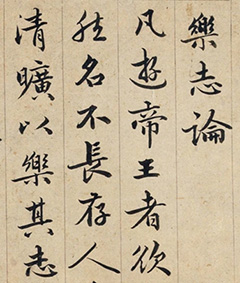 樂志論
凡游帝王者欲
然名不長存人
清曠以樂其志